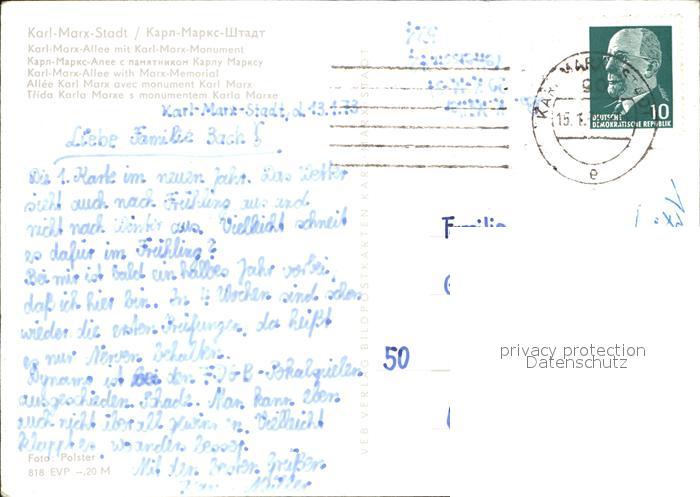 Karl-Marx-Stadt / Карл-Маркс-Штадт
Karl-Marx-Allee mit Karl-Marx-Monument
Карл-Маркс-Алее с памятником Карлу Марксу
Karl-Marx-Allee with Marx-Memorial
Allée Karl Marx avec monument Karl Marx
Třída Karla Marxe s monumentem Karla Marxe
Karl-Marx-Stadt, d. 13.1.73
Liebe Familie Bach!
Die 1. Karte im neuen Jahr. Das Wetter
sieht auch nach Frühling aus und
nicht nach Winter aus. Vielleicht schneit
es dafür im Frühling?
Bei mir ist bald ein halbes Jahr vorbei,
daß ich hier bin. In 4 Wochen sind schon
wieder die ersten Prüfungen, da heißt
es nur Nerven behalten.
Dynamo ist bei den FDGB-Pokalspielen
ausgeschieden. Schade. Man kann eben
auch nicht überall gewinnen. Vielleicht
klappt es woanders besser.
Mit den besten Grüßen
Müller
Foto: Polster
818 EVP –,20 M
VEB VERLAG BILDPOSTKARTEN
KARL MARX
15.1.
e
10
DEUTSCHE
DEMOKRATISCHE REPUBLIK
Familie
50
privacy protection
Datenschutz